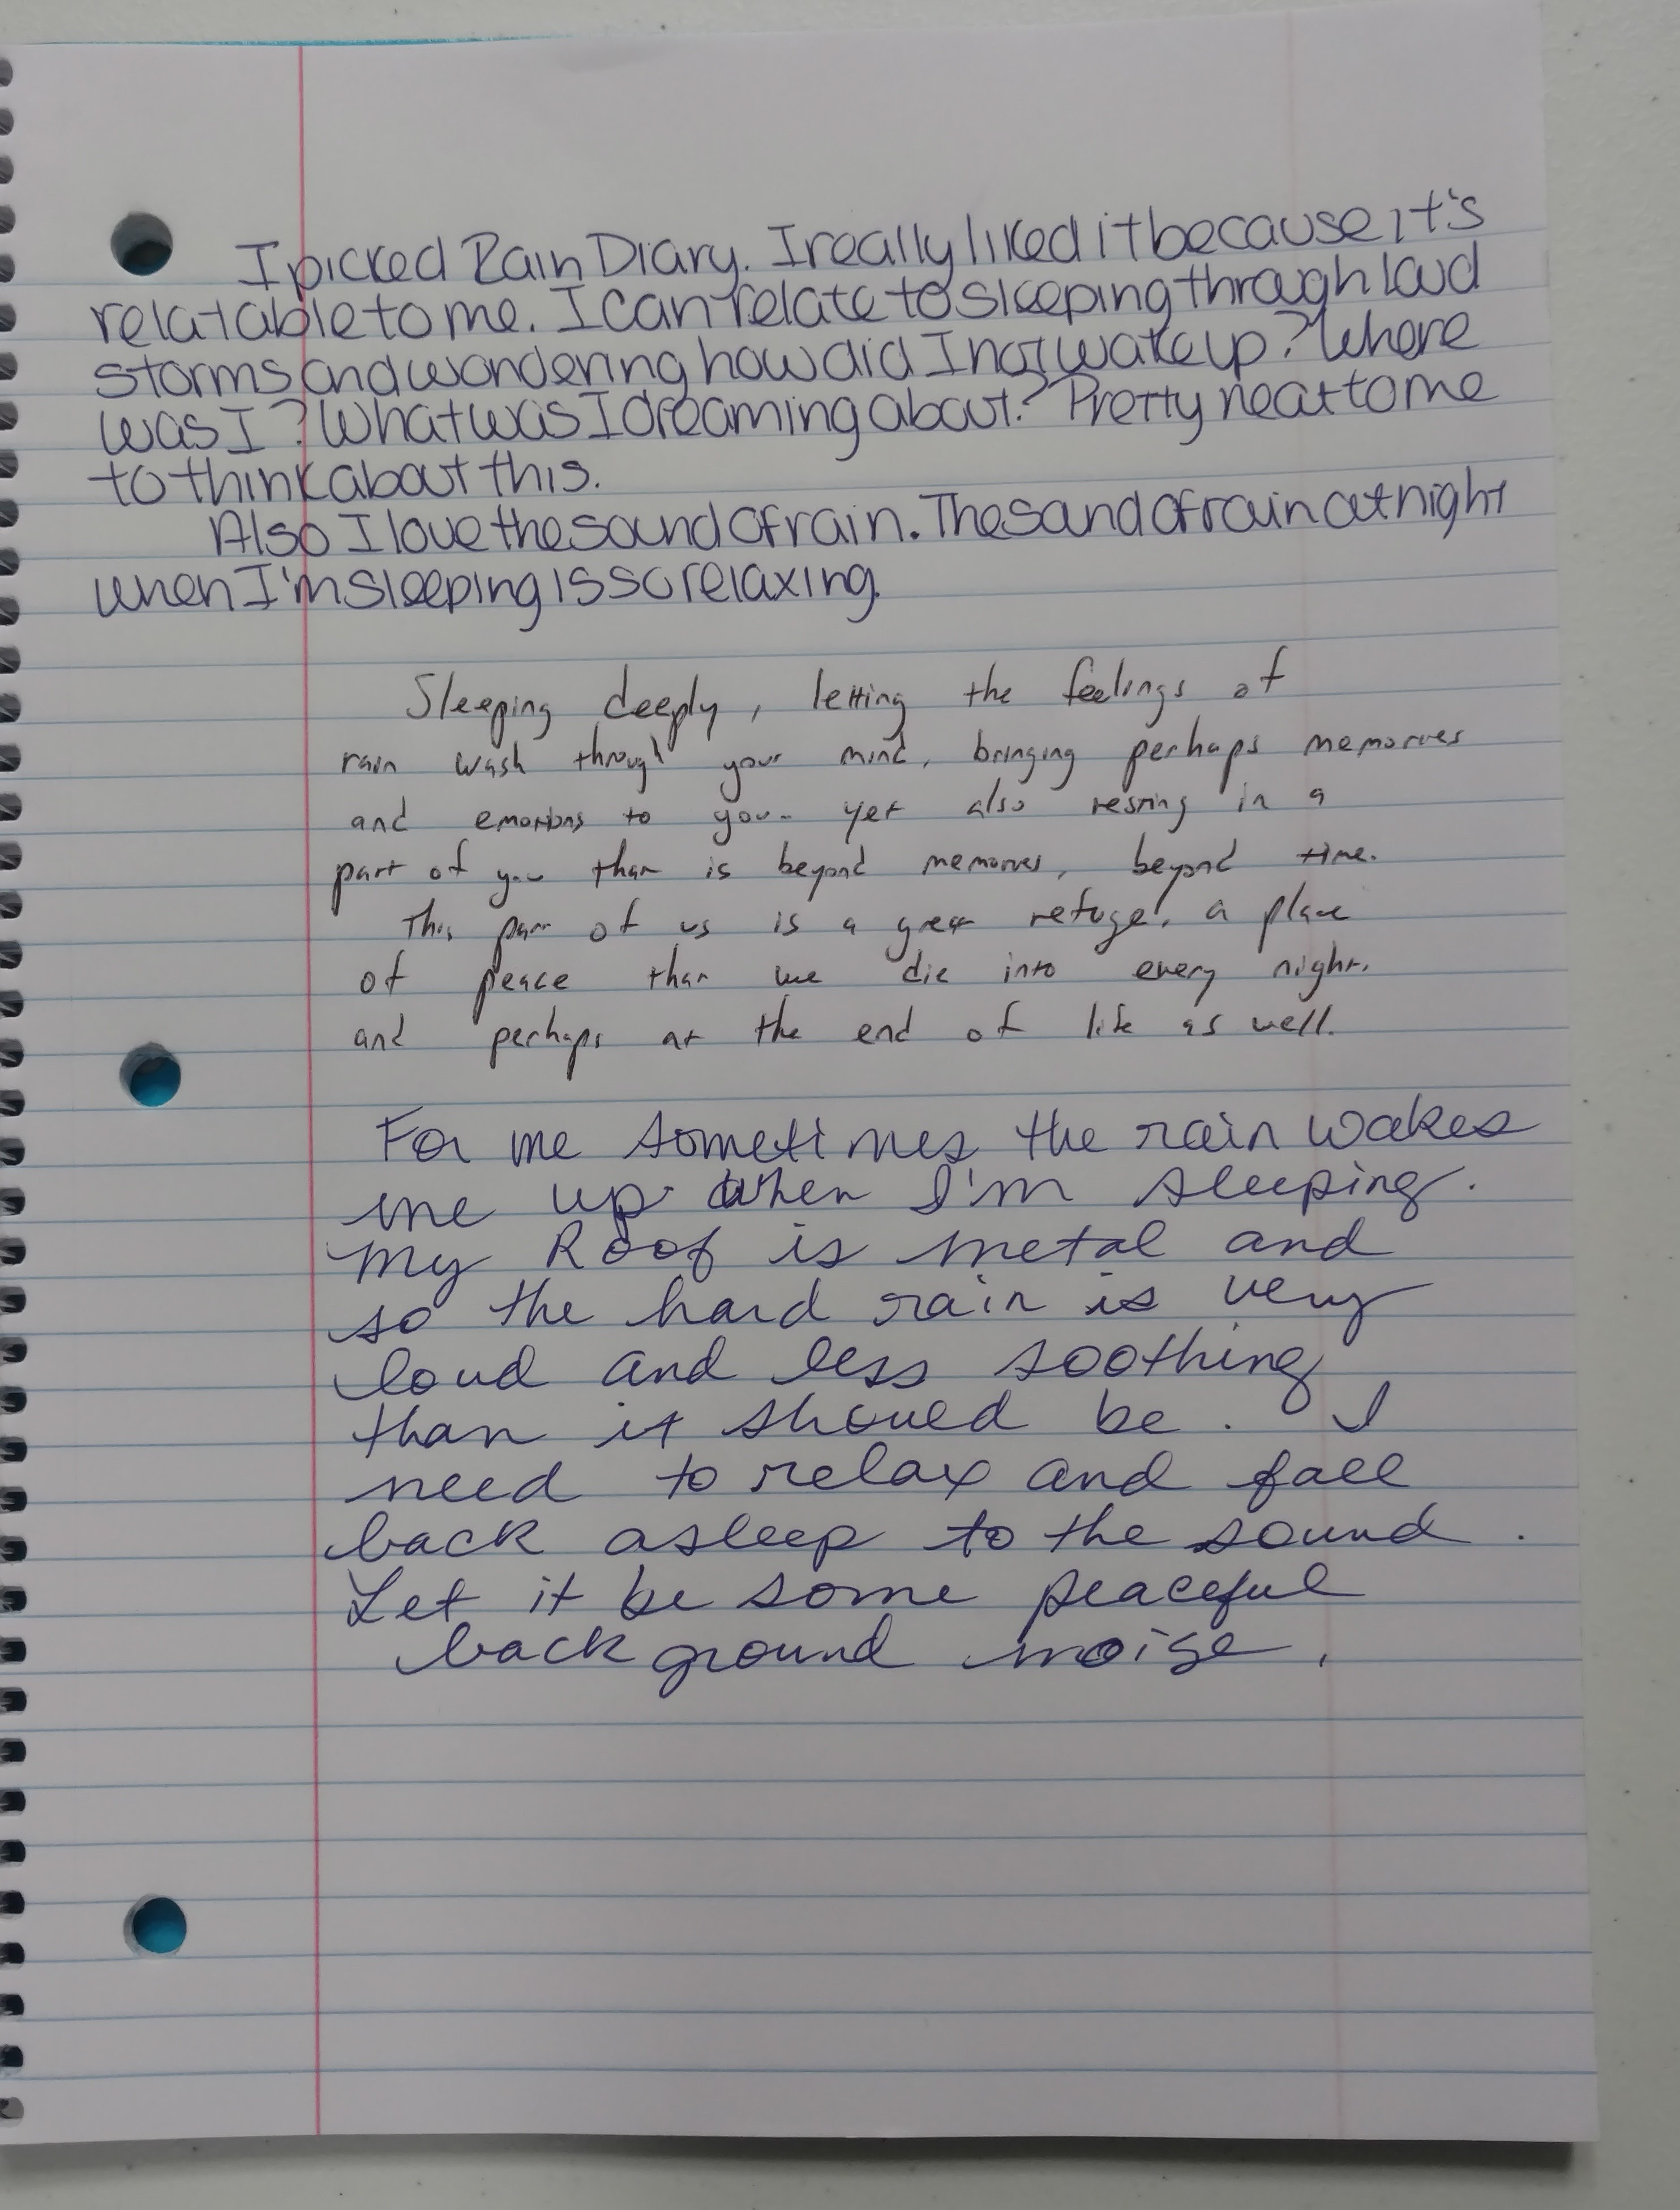 I picked Rain Diary. I really liked it because it's
relatable to me. I can relate to sleeping through loud
storms and wondering how did I not wake up? Where
was I? What was I dreaming about? Pretty neat to me
to think about this.
Also I love the sound of rain. The sound of rain at night
when I'm sleeping is so relaxing.
Sleeping deeply, letting the feelings of
rain wash through your mind, bringing perhaps memories
and emotions to you - yet also resting in a
part of you that is beyond memories, beyond time.
This part of us is a great refuge, a place
of peace that we die into every night,
and perhaps at the end of life as well.
For me sometimes the rain wakes
me up when I'm sleeping.
My Roof is metal and
so the hard rain is very
loud and less soothing
than it should be. I
need to relax and fall
back asleep to the sound.
Let it be some peaceful
background noise.